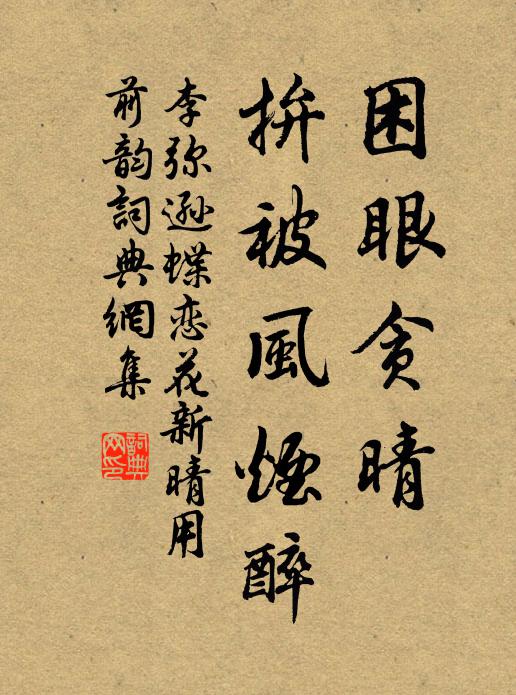 困眼贪晴
拚被風煙醉
李弥遜蝶恋花新晴用
前韵詞典網集
詞典
网印